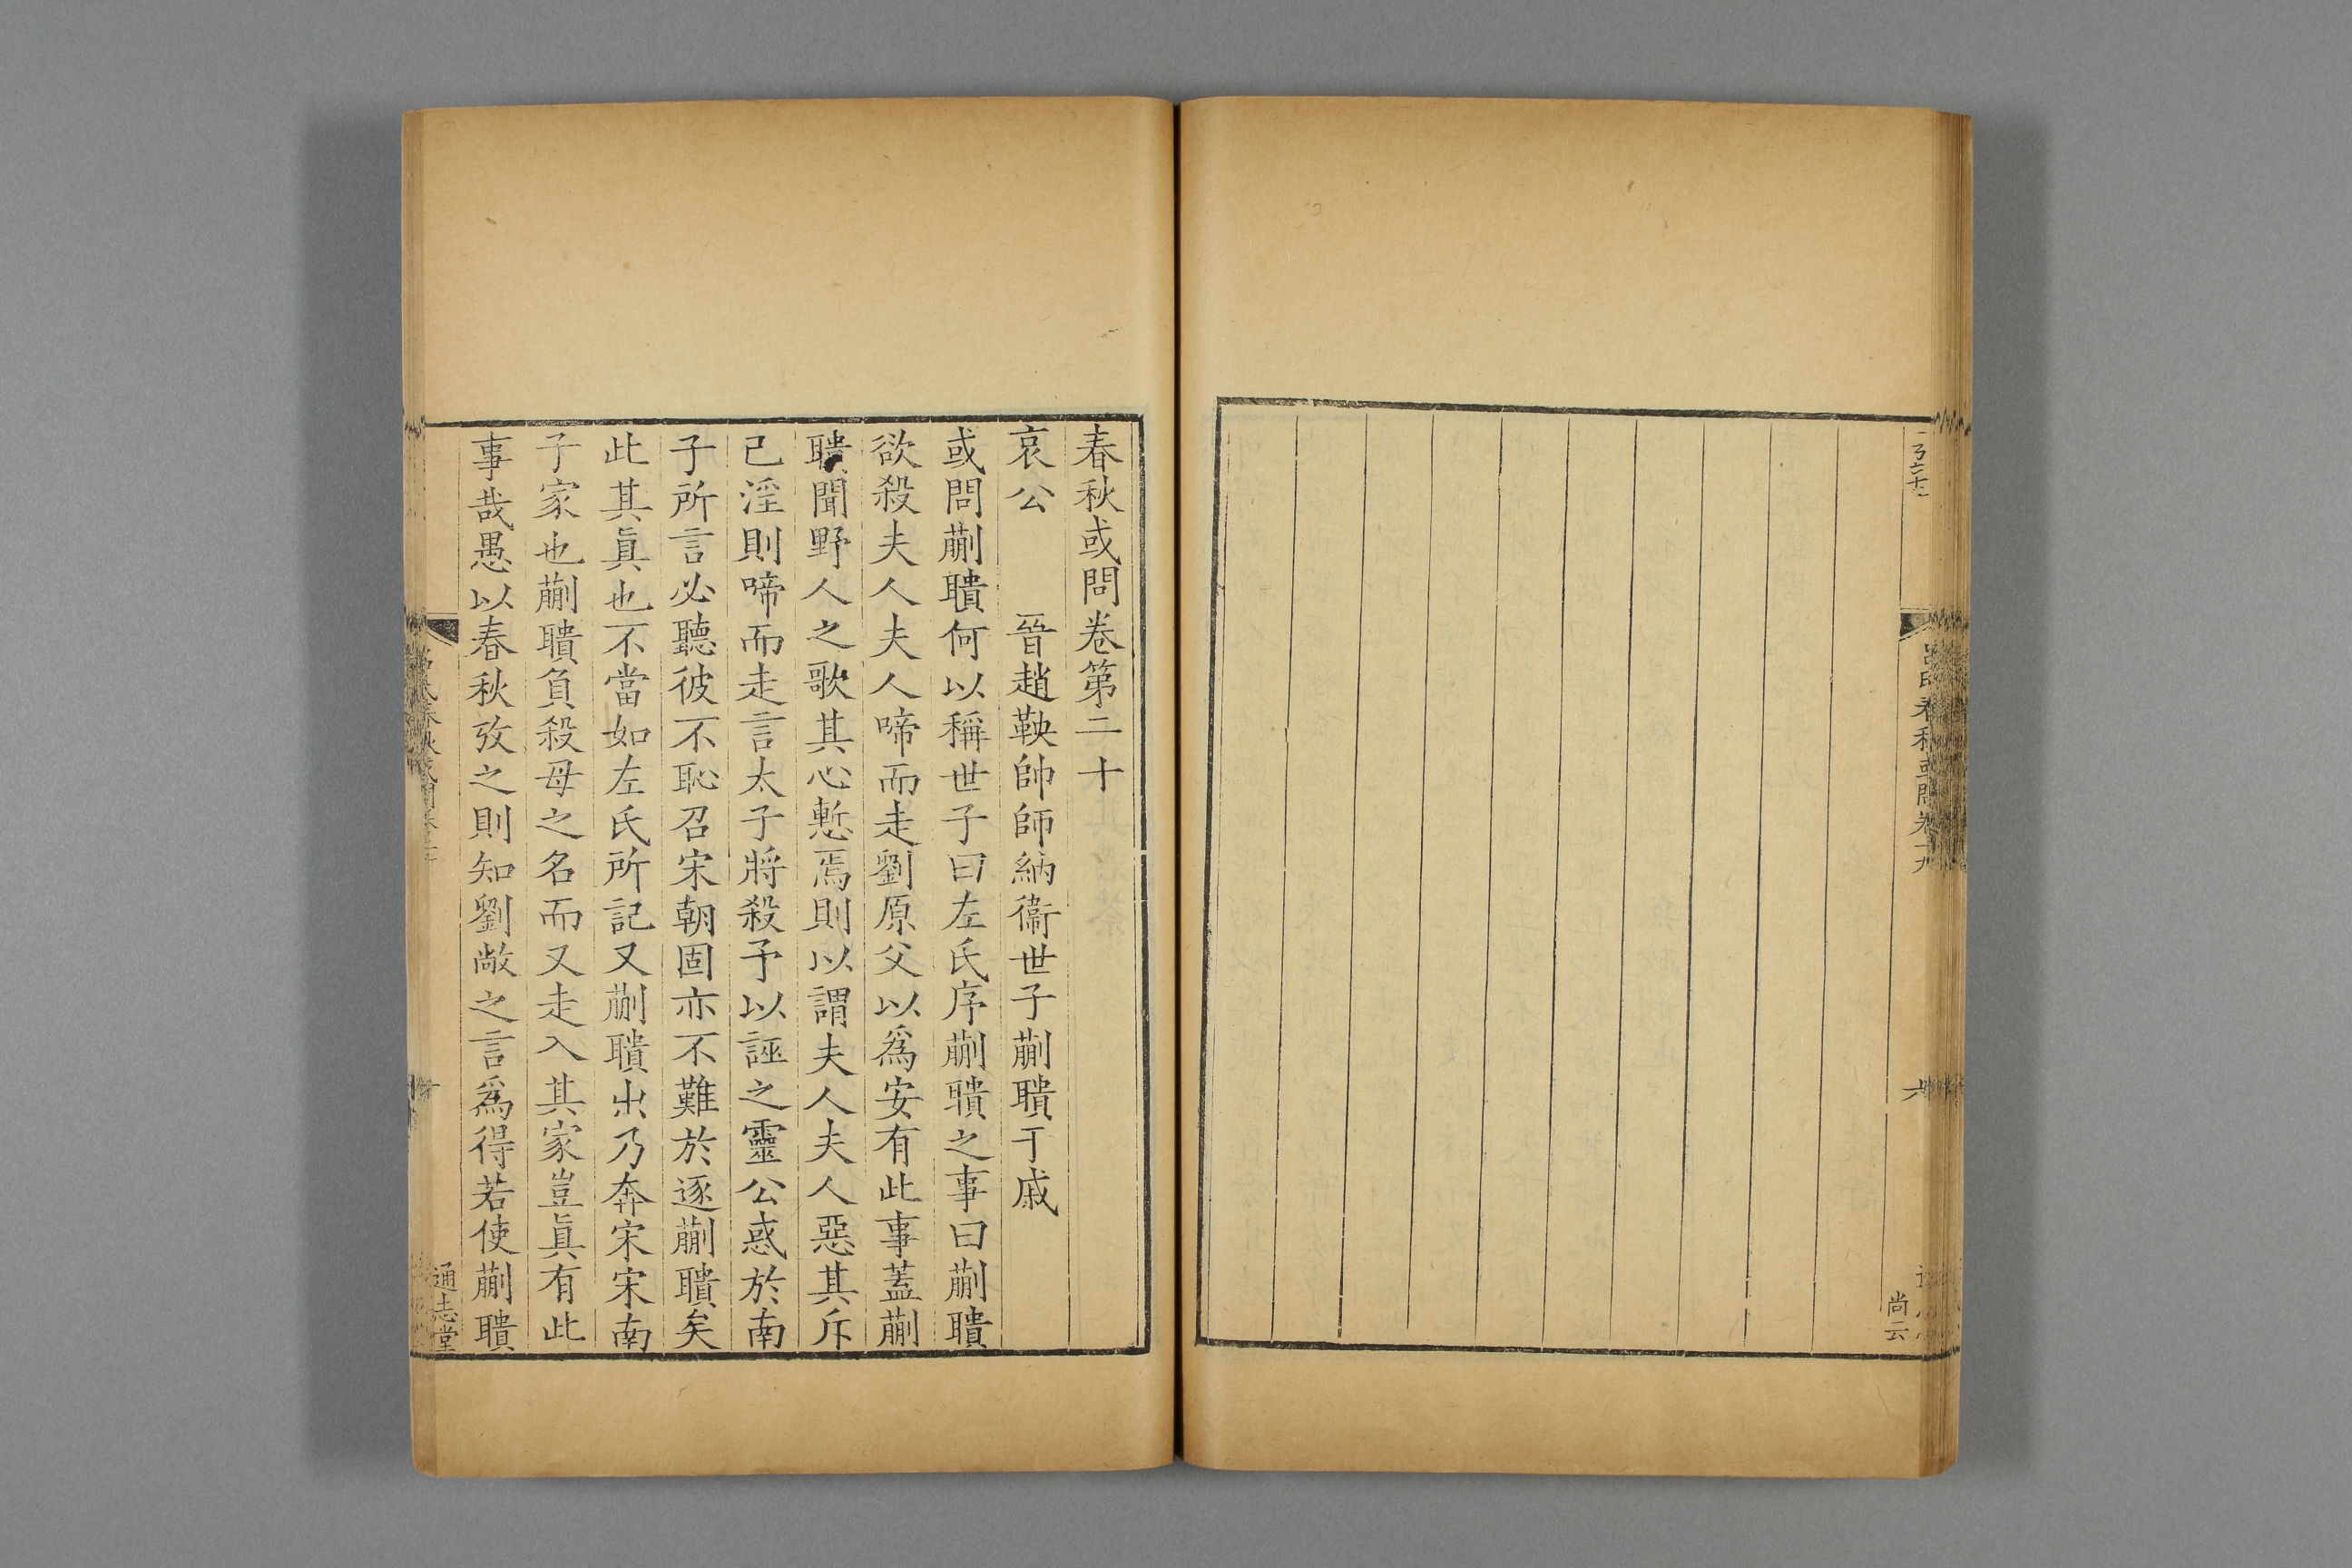 呂氏春秋或問卷十九
尚云
春秋或問卷第二十
哀公　　晉趙鞅帥師納衞世子蒯聵于戚
或問蒯聵何以稱世子曰左氏序蒯聵之事曰蒯聵
欲殺夫人夫人啼而走劉原父以爲安有此事蓋蒯
聵聞野人之歌其心慙焉則以謂夫人夫人惡其斥
己淫則啼而走言太子將殺予以誣之靈公惑於南
子所言必聽彼不恥召宋朝固亦不難於逐蒯聵矣
此其眞也不當如左氏所記又蒯聵出乃奔宋宋南
子家也蒯聵負殺母之名而又走入其家豈眞有此
事哉愚以春秋攷之則知劉敞之言爲得若使蒯聵
通志堂